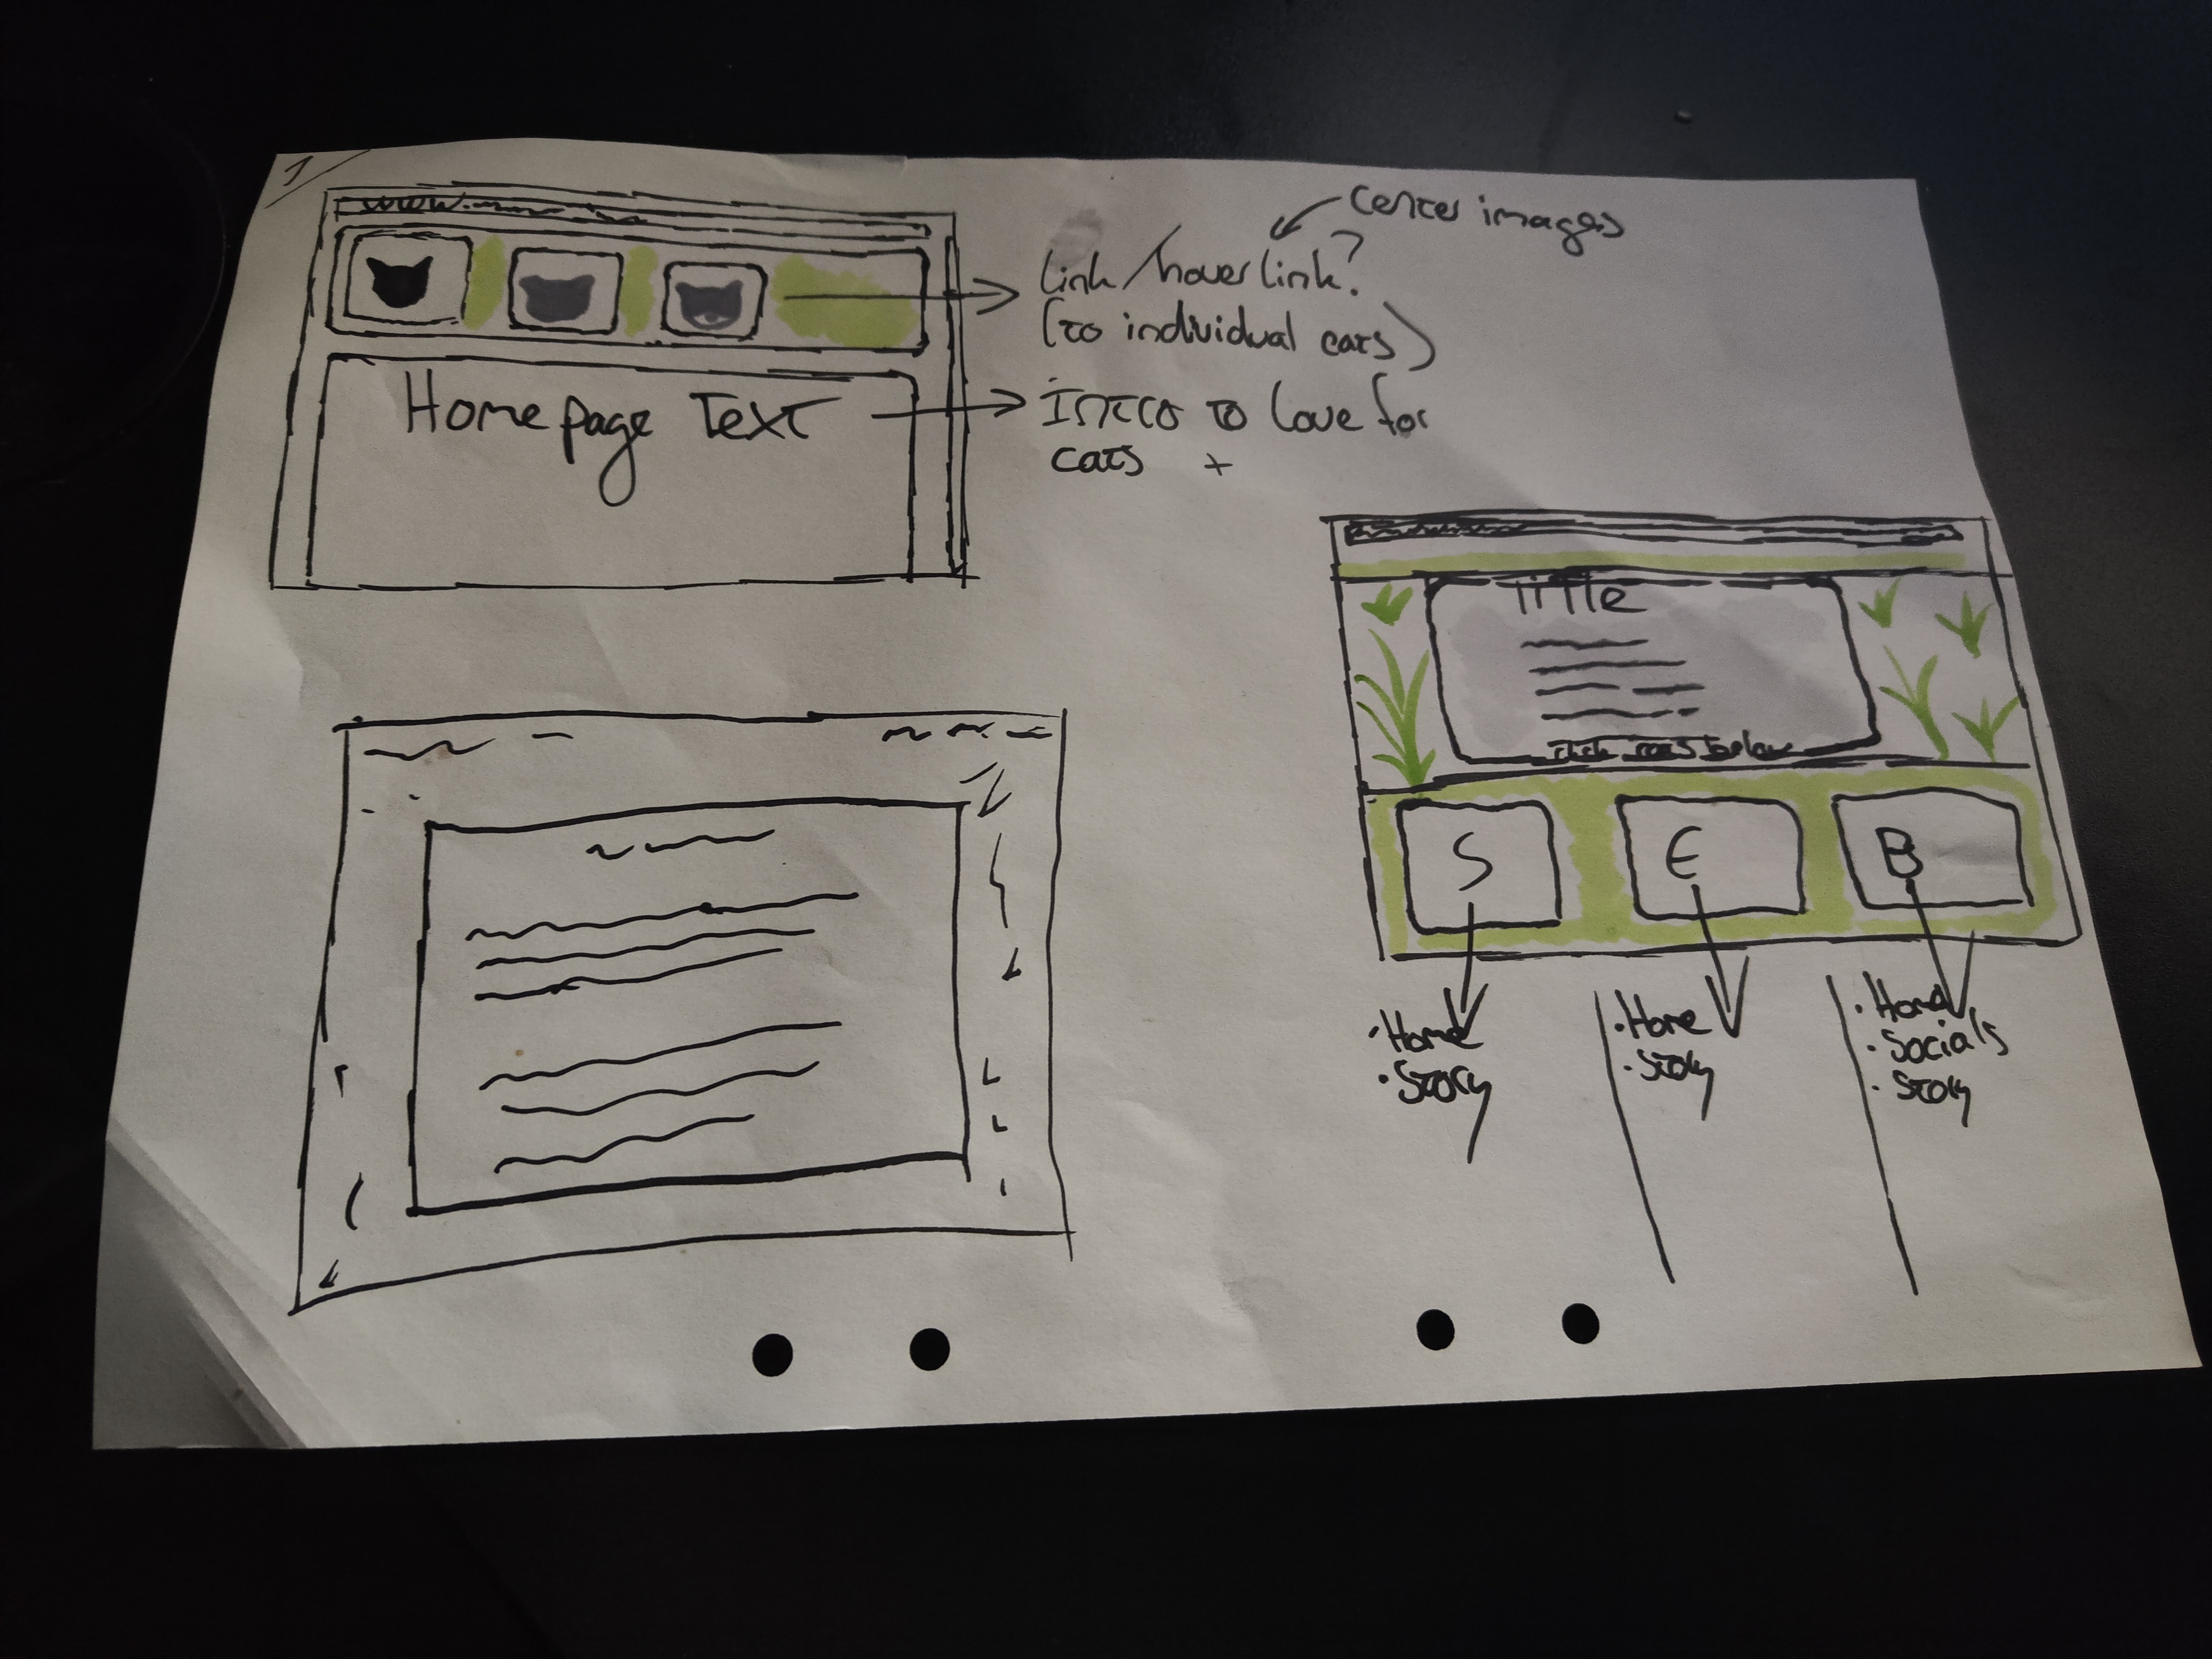 1
www.
Center images
Link/hover link?
(to individual cats)
Homepage Text
Intro to love for
cats +
Title
click cats below
S E B
• Home
• Story
• Home
• Story
• Home
• Socials
• Story